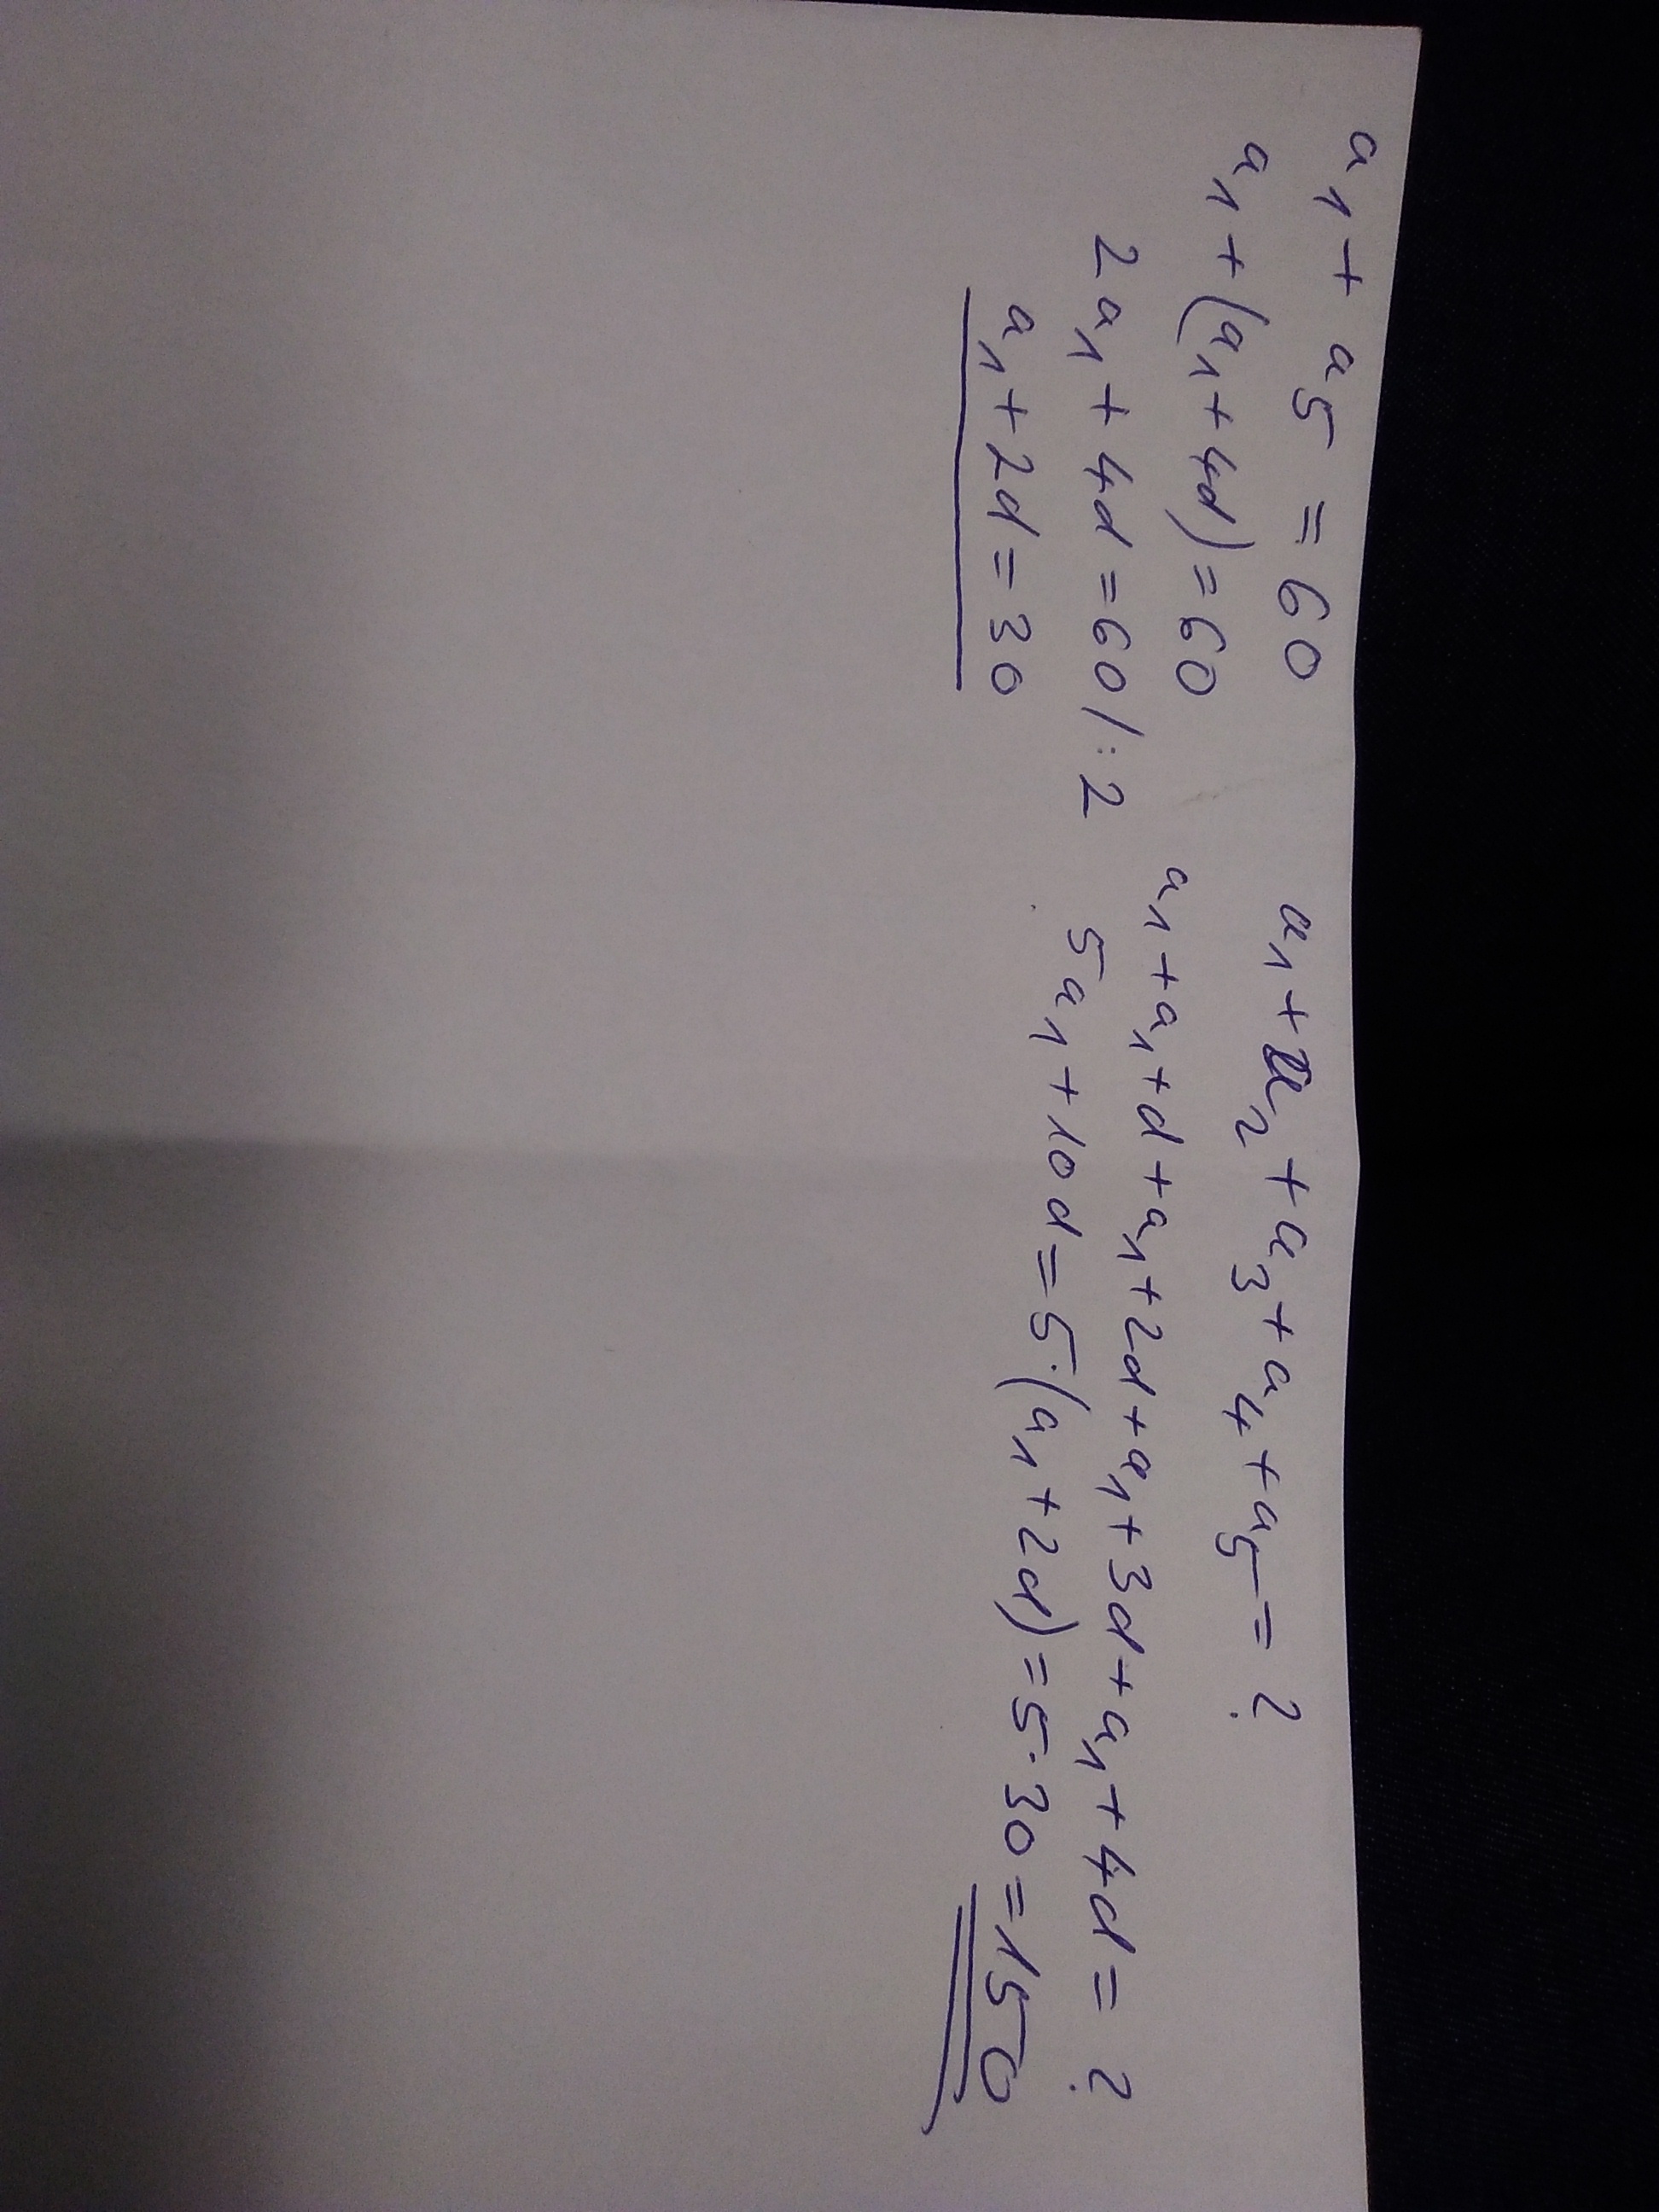 a₁ + a₅ = 60
a₁ + (a₁ + 4d) = 60
2a₁ + 4d = 60 /:2
a₁ + 2d = 30
a₁ + a₂ + a₃ + a₄ + a₅ = ?
a₁ + a₁ + d + a₁ + 2d + a₁ + 3d + a₁ + 4d = ?
5a₁ + 10d = 5·(a₁ + 2d) = 5·30 = 150